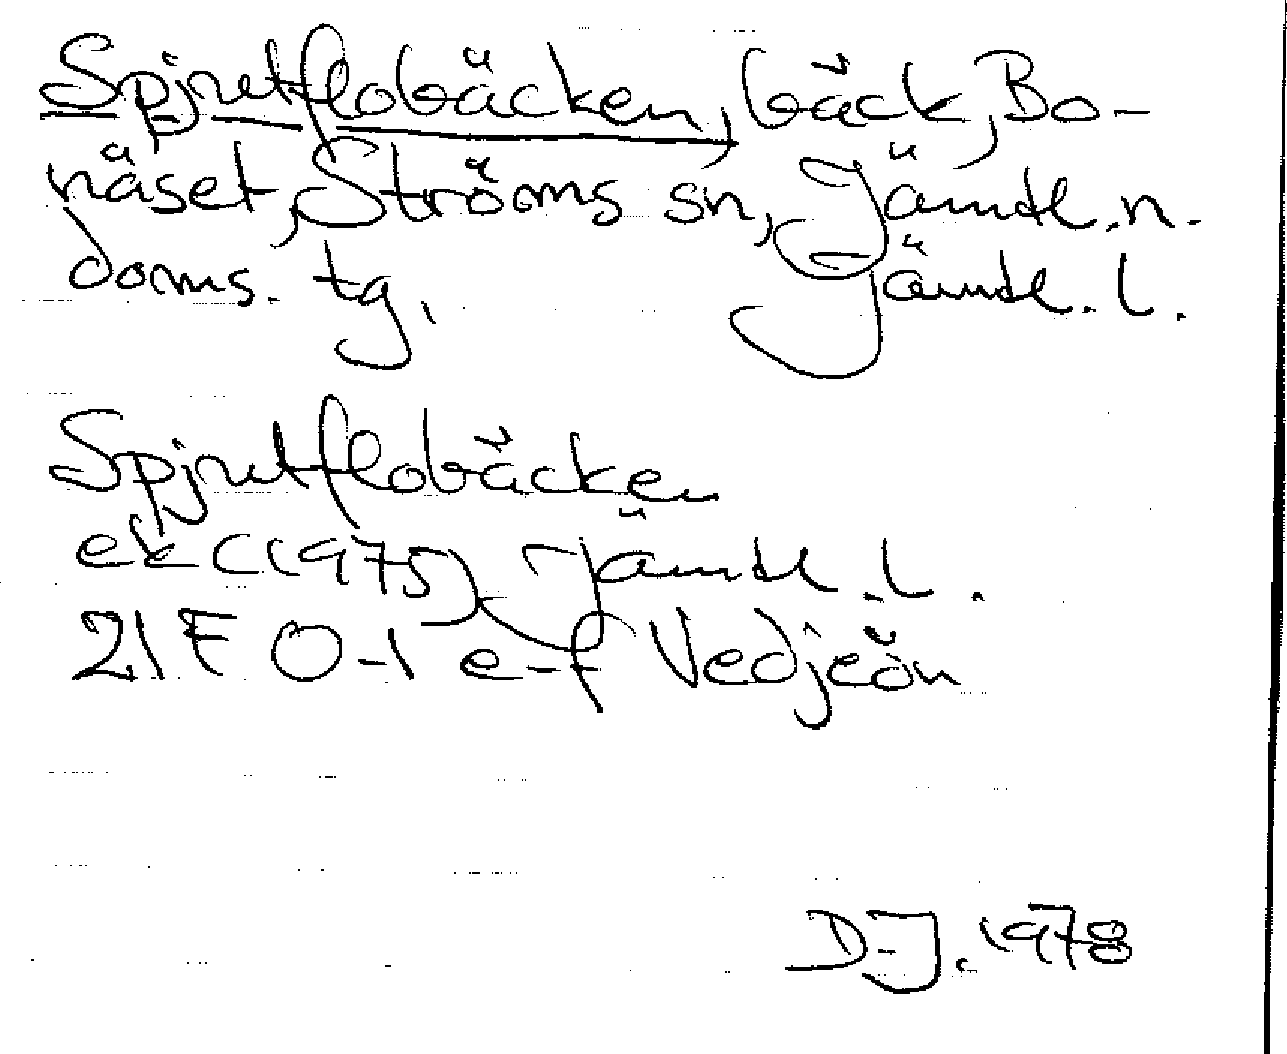 Spjutflobäcken, bäck, Bo-
näset, Ströms sn, Jämtl. n.
doms. tg, Jämtl. l.
Spjutflobäcken
ek (1975), Jämtl. l.
21F 0-1 e-f Vedjeön
D-J. 1978